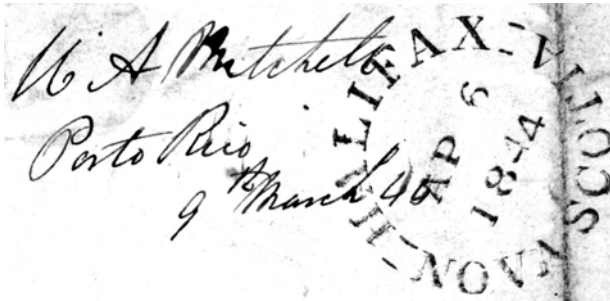 W A Mitchell
Porto Rico
9th March
HALIFAX-NOVA SCOTIA
AP 6